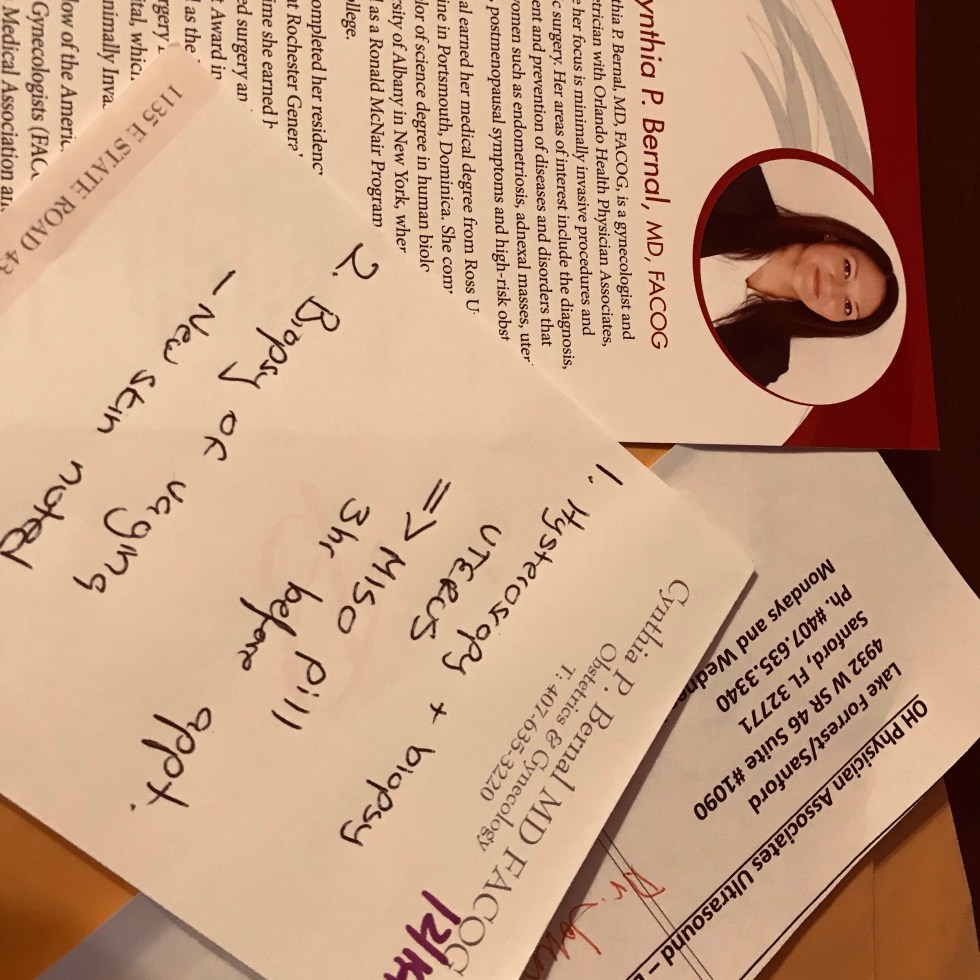 ynthia P. Bernal, MD, FACOG
thia P. Bernal, MD, FACOG, is a gynecologist and
etrician with Orlando Health Physician Associates,
e her focus is minimally invasive procedures and
c surgery. Her areas of interest include the diagnosis,
ent and prevention of diseases and disorders that
women such as endometriosis, adnexal masses, uter
, postmenopausal symptoms and high-risk obst
al earned her medical degree from Ross U
ine in Portsmouth, Dominica. She com
lor of science degree in human biolo
rsity of Albany in New York, wher
as a Ronald McNair Program
llege.
ompleted her residenc
at Rochester Genera
ime she earned h
ed surgery an
t Award in
as the
rgery
ital, which
inimally Inva
low of the Americ
Gynecologists (FACO
Medical Association an
Cynthia P. Bernal MD FACOG
Obstetrics & Gynecology
T: 407-635-3220
1. Hysteroscopy + biopsy
UTERUS
=> MISO pill
3hr before appt.
2. Biopsy of vagina
- New skin noted
1135 E. STATE ROAD 43
OH Physician Associates Ultrasound –
Lake Forrest/Sanford
4932 W SR 46 Suite #1090
Sanford, FL 32771
Ph. #407.635.3340
Mondays and Wedne